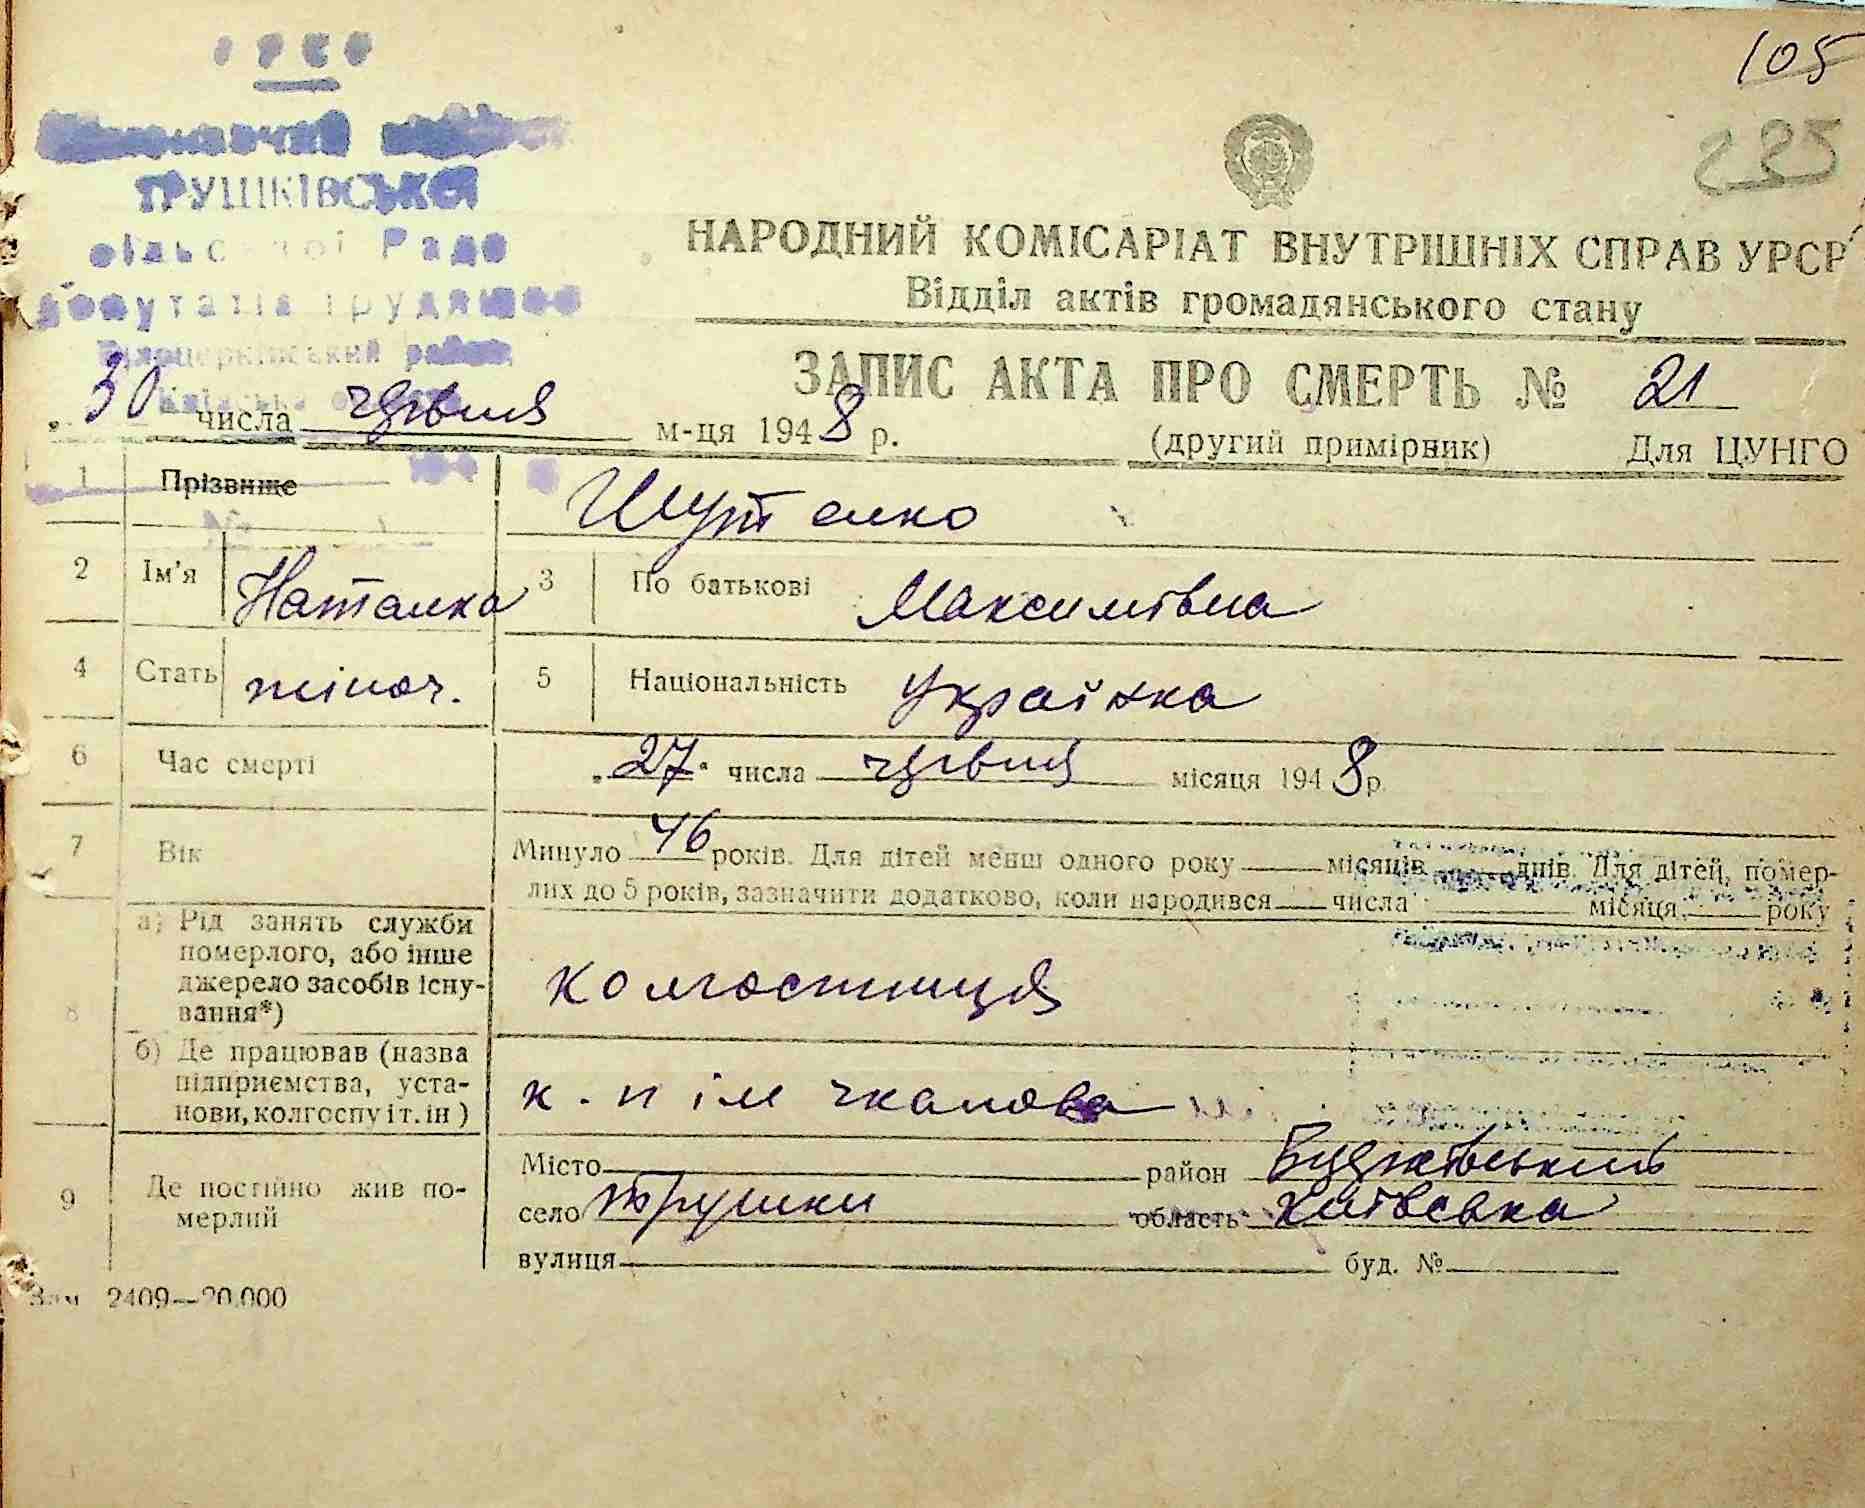 УРСР
Виконавчий комітет
ТРУШКІВСЬКОЇ
сільської Ради
депутатів трудящих
Білоцерківський район,
105
225
НАРОДНИЙ КОМІСАРІАТ ВНУТРІШНІХ СПРАВ УРСР
Відділ актів громадянського стану
ЗАПИС АКТА ПРО СМЕРТЬ № 21
„30 числа червня м-ця 1948 р.
(другий примірник) Для ЦУНГО
1 Прізвище Шутенко
2 Ім'я Наталка 3 По батькові Максимівна
4 Стать жіноч. 5 Національність Українка
6 Час смерті „27" числа червня місяця 1948 р.
7 Вік Минуло 46 років. Для дітей менш одного року місяців днів. Для дітей, помер-
лих до 5 років, зазначити додатково, коли народився числа місяця року
8 а) Рід занять служби
померлого, або інше
джерело засобів існу-
вання*) колгоспниця
б) Де працював (назва
підприємства, уста-
нови, колгоспу і т. ін) к. п ім чкалова
9 Де постійно жив по-
мерлий
Місто район
село Трушки область Київська
вулиця буд. №
Зам 2409—20.000